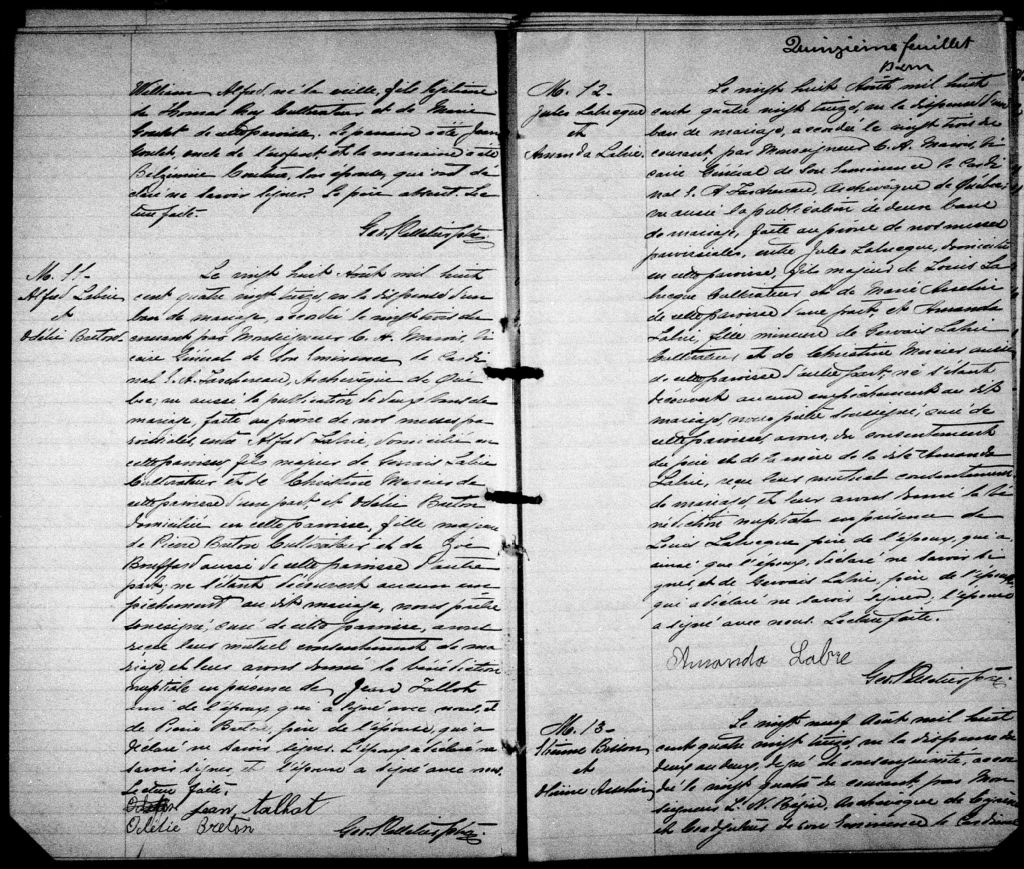 William Alfred, né la veille, fils légitime
de Thomas Roy Cultivateur et de Marie
Goulet de cette paroisse. Le parrain a été Jean
Goulet, oncle de l'enfant et la marraine a été
Couture, son épouse, qui ont dé
claré ne savoir signer. Le père absent. Lec
ture faite.
Geo. Pelletier, ptre
M. 11-
Alfred Labrie
et
Odélie Breton
Le vingt huit Août mil huit
cent quatre vingt treize, vu la dispense d'un
ban de mariage, accordée le vingt trois du
courant par Monseigneur C. A. Marois, Vi
caire Général de Son Eminence le Cardi
nal E. A. Taschereau, Archevêque de Qué
bec; vu aussi la publication de deux bans de
mariage, faite au prône de nos messes pa
roissiales, entre Alfred Labrie, domicilié en
cette paroisse, fils majeur de Gervais Labrie
Cultivateur et de Christine Mercier de
cette paroisse d'une part, et Odélie Breton
domiciliée en cette paroisse, fille majeure
de Pierre Breton Cultivateur et de Zoé
Bouffard aussi de cette paroisse d'autre
part; ne s'étant découvert aucun em
pêchement au dit mariage, nous prêtre
soussigné, curé de cette paroisse, avons
reçu leur mutuel consentement de ma
riage, et leur avons donné la bénédiction
nuptiale en présence de Jean Talbot
ami de l'époux, qui a signé avec nous, et
de Pierre Breton, père de l'épouse, qui a
déclaré ne savoir signer. L'époux a déclaré ne
savoir signer, et l'épouse a signé avec nous.
Lecture faite.
Jean talbot
Odélie Breton
Geo. Pelletier, ptre
Quinzième feuillet
M. 12-
Jules Labrecque
et
Amanda Labrie.
Le vingt huit Août mil huit
cent quatre vingt treize, vu la dispense d'un
ban de mariage, accordée le vingt trois du
courant, par Monseigneur C. A. Marois, Vi
caire Général de Son Eminence le Cardi
nal E. A. Taschereau, Archevêque de Québec;
vu aussi la publication de deux bans
de mariage, faite au prône de nos messes
paroissiales, entre Jules Labrecque, domicilié
en cette paroisse, fils majeur de Louis La
brecque Cultivateur, et de Marie Asselin
de cette paroisse d'une part, et Amanda
Labrie, fille mineure de Gervais Labrie
Cultivateur et de Christine Mercier aussi
de cette paroisse d'autre part; ne s'étant
découvert aucun empêchement au dit
mariage, nous prêtre soussigné, curé de
cette paroisse, avons, du consentement
du père et de la mère de la dite Amanda
Labrie, reçu leur mutuel consentement
de mariage, et leur avons donné la bé
nédiction nuptiale en présence de
Louis Labrecque père de l'époux, qui a
ainsi que l'époux, déclaré ne savoir si
gner, et de Gervais Labrie, père de l'épouse,
qui a déclaré ne savoir signer, l'épouse
a signé avec nous. Lecture faite.
Amanda Labre
Geo. Pelletier, ptre.
M. 13-
Bisson
et
Asselin
Le vingt neuf Août mil huit
cent quatre vingt treize, vu la dispense du
deux au deux, degré de consanguinité, accor
dée le vingt quatre du courant, par Mon
seigneur L. N. Bégin, Archevêque de Cyrène
et Coadjuteur de son Eminence le Cardinal